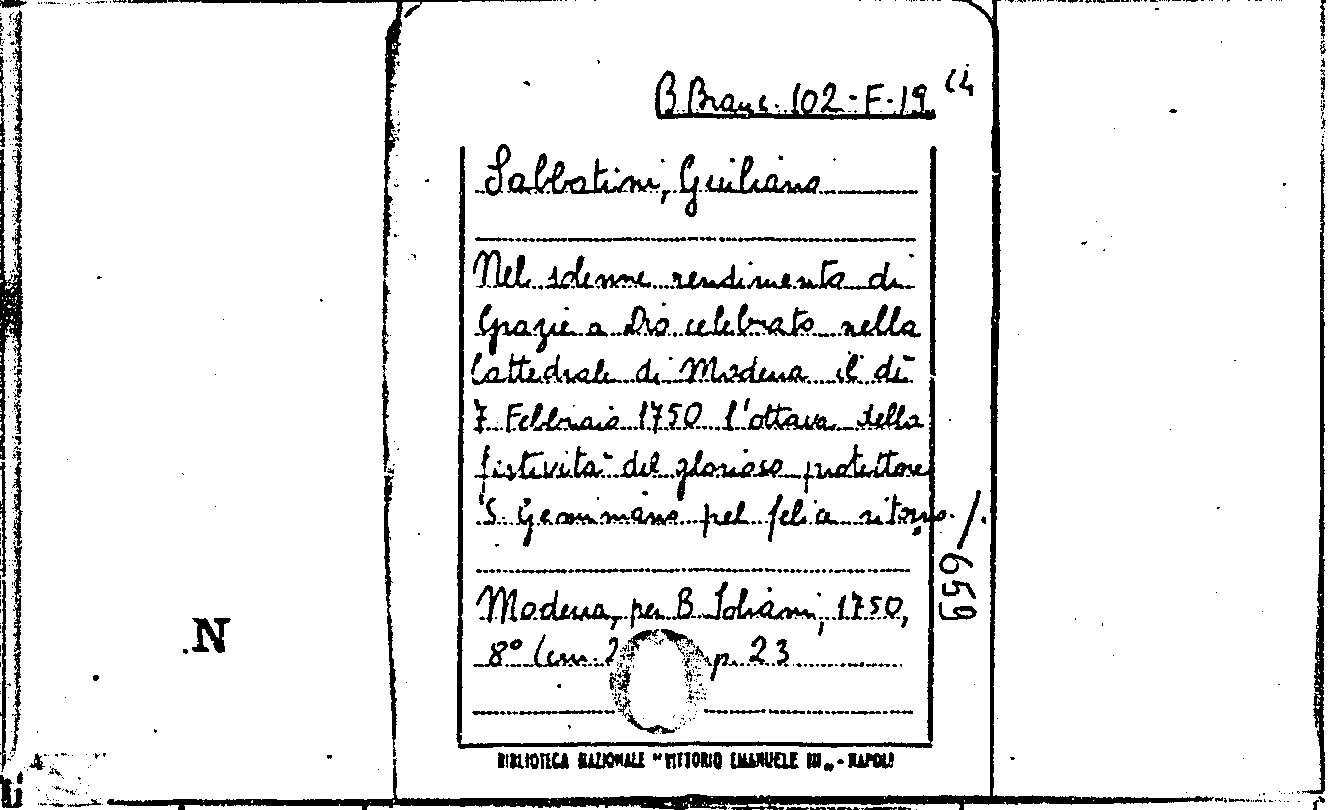 B. Branc. 102-F-19 (4
Sabbatini, Giuliano
Nel solenne rendimento di
Grazie a Dio celebrato nella
Cattedrale di Modena il dì
7 Febbraio 1750 l'ottava della
festività del glorioso protettore
S. Geminiano pel felice ritorno. /.
659
Modena, per B. Soliani, 1750,
8° (cm. 2 p. 23
N
BIBLIOTECA NAZIONALE "VITTORIO EMANUELE III„ - NAPOLI